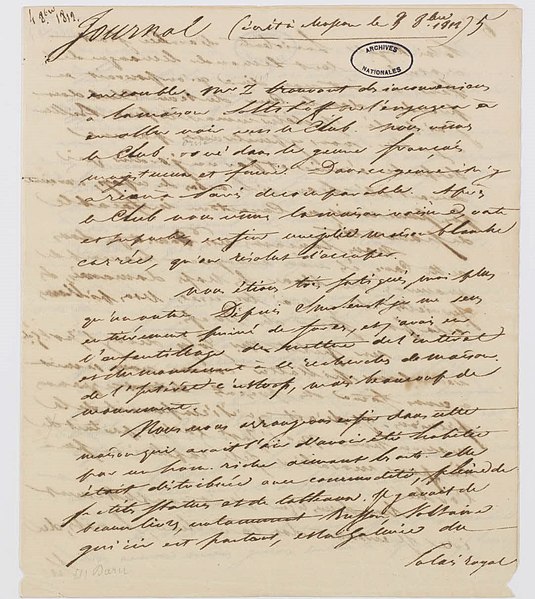 4 8bre 1812.
Journal (écrit à Moscou le 4 8bre 1812) 5
ARCHIVES
NATIONALES
ensemble. Mr Z trouvant des inconvéniens
à la maison nous
en aller voir vers le Club. Nous vîmes
le Club, orné dans le genre français,
majestueux et fumé. Dans ce genre il n'y
a rien à Paris de comparable. Après
le Club nous vîmes la maison voisine, vaste
et superbe, enfin une jolie maison blanche
carrée, qu'on résolut d'occuper.
Nous étions très fatigués, moi plus
qu'un autre. Depuis Smolensk je me sens
entièrement privé de forces, et j'avais eu
l'enfantillage de mettre de l'intérêt
et du mouvement à ces recherches de maison.
De l'intérêt c'est trop, mais beaucoup de
mouvement.
Nous nous arrangeons enfin dans cette
maison qui avait l'air d'avoir été habitée
par un hom. riche aimant les arts. Elle
était distribuée avec commodité, pleine de
petites statues et de tableaux. Il y avait de
beaux livres, notamment Buffon, Voltaire
qui ici est partout, et la Galerie du
Palais royal